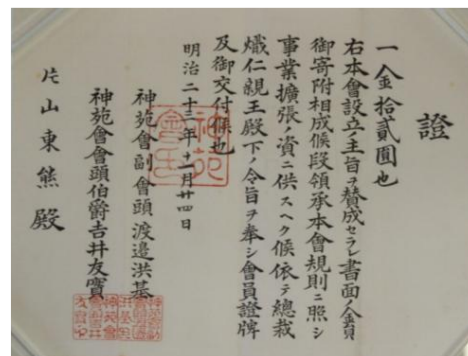 證
一金拾貳圓也
右本會設立ノ主旨ヲ賛成セラレ書面ノ金員
御寄附相成候段領承本會規則ニ照シ
事業擴張ノ資ニ供スヘク候依テ總裁
熾仁親王殿下ノ令旨ヲ奉シ會員證牌
及御交付候也
明治二十三年十一月廿四日
神苑會副會頭渡邉洪基
神苑會會頭伯爵吉井友實
片山東熊殿